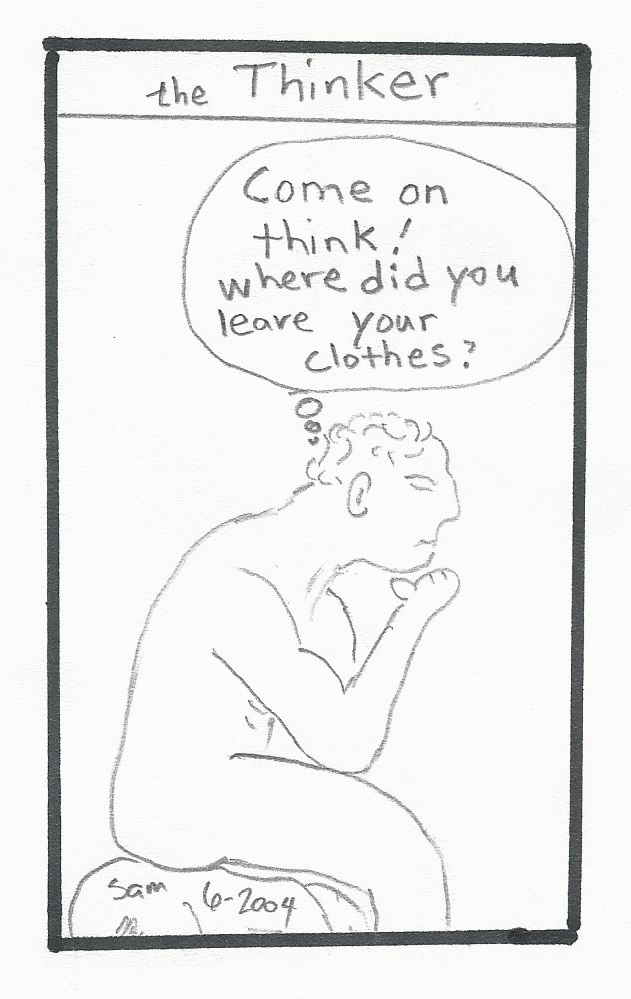 the Thinker
Come on
think!
where did you
leave your
clothes?
Sam 6-2004
M.